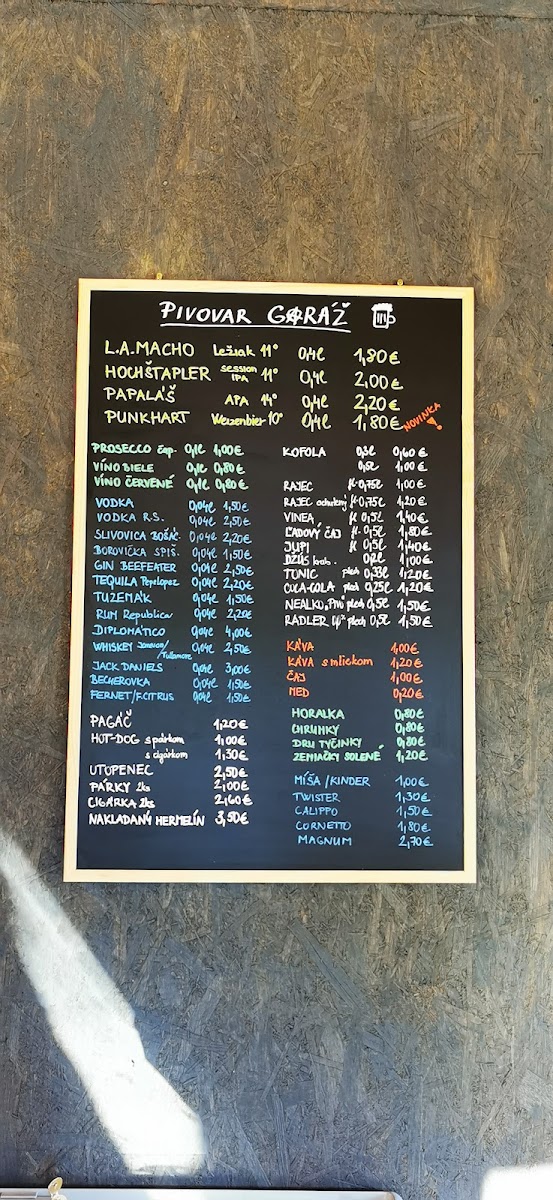 PIVOVAR GARÁŽ
L.A.MACHO Ležiak 11° 0,4l 1,80€
HOCHŠTAPLER SESSION IPA 11° 0,4l 2,00€
PAPALÁŠ APA 14° 0,4l 2,20€
PUNKHART Weizenbier 10° 0,4l 1,80€ NOVINKA!
PROSECCO čap. 0,1l 1,00€
VÍNO BIELE 0,1l 0,80€
VÍNO ČERVENÉ 0,1l 0,80€
VODKA 0,04l 1,50€
VODKA R.S. 0,04l 2,50€
SLIVOVICA BOŠÁC. 0,04l 2,20€
BOROVIČKA SPIŠ. 0,04l 1,50€
GIN BEEFEATER 0,04l 2,50€
TEQUILA Pepelopez 0,04l 2,20€
TUZEMÁK 0,04l 1,50€
RUM Republica 0,04l 2,20€
DIPLOMÁTICO 0,04l 4,00€
WHISKEY Jameson/Tullamore 0,04l 2,50€
JACK DANIELS 0,04l 3,00€
BECHEROVKA 0,04l 1,50€
FERNET/F.CITRUS 0,04l 1,50€
PAGÁČ 1,20€
HOT-DOG s párkom 1,00€
s cigárkom 1,30€
UTOPENEC 2,50€
PÁRKY 2ks 2,00€
CIGÁRKA 2ks 2,60€
NAKLADANÝ HERMELÍN 3,50€
KOFOLA 0,3l 0,60€
0,5l 1,00€
RAJEC fl. 0,75l 1,00€
RAJEC ochutený fl. 0,75l 1,20€
VINEA fl. 0,5l 1,40€
ĽADOVÝ ČAJ fl. 0,5l 1,80€
JUPI fl. 0,5l 1,40€
DŽÚS krab. 0,2l 1,00€
TONIC plech 0,33l 1,20€
COCA-COLA plech 0,25l 1,20€
NEALKO, PIVO plech 0,5l 1,50€
RADLER plech 0,5l 1,50€
KÁVA 1,00€
KÁVA s mliekom 1,20€
ČAJ 1,00€
MED 0,20€
HORALKA 0,80€
CHRUMKY 0,80€
DRU TYČINKY 0,80€
ZEMIAČKY SOLENÉ 1,20€
MÍŠA/KINDER 1,00€
TWISTER 1,30€
CALIPPO 1,50€
CORNETTO 1,80€
MAGNUM 2,70€